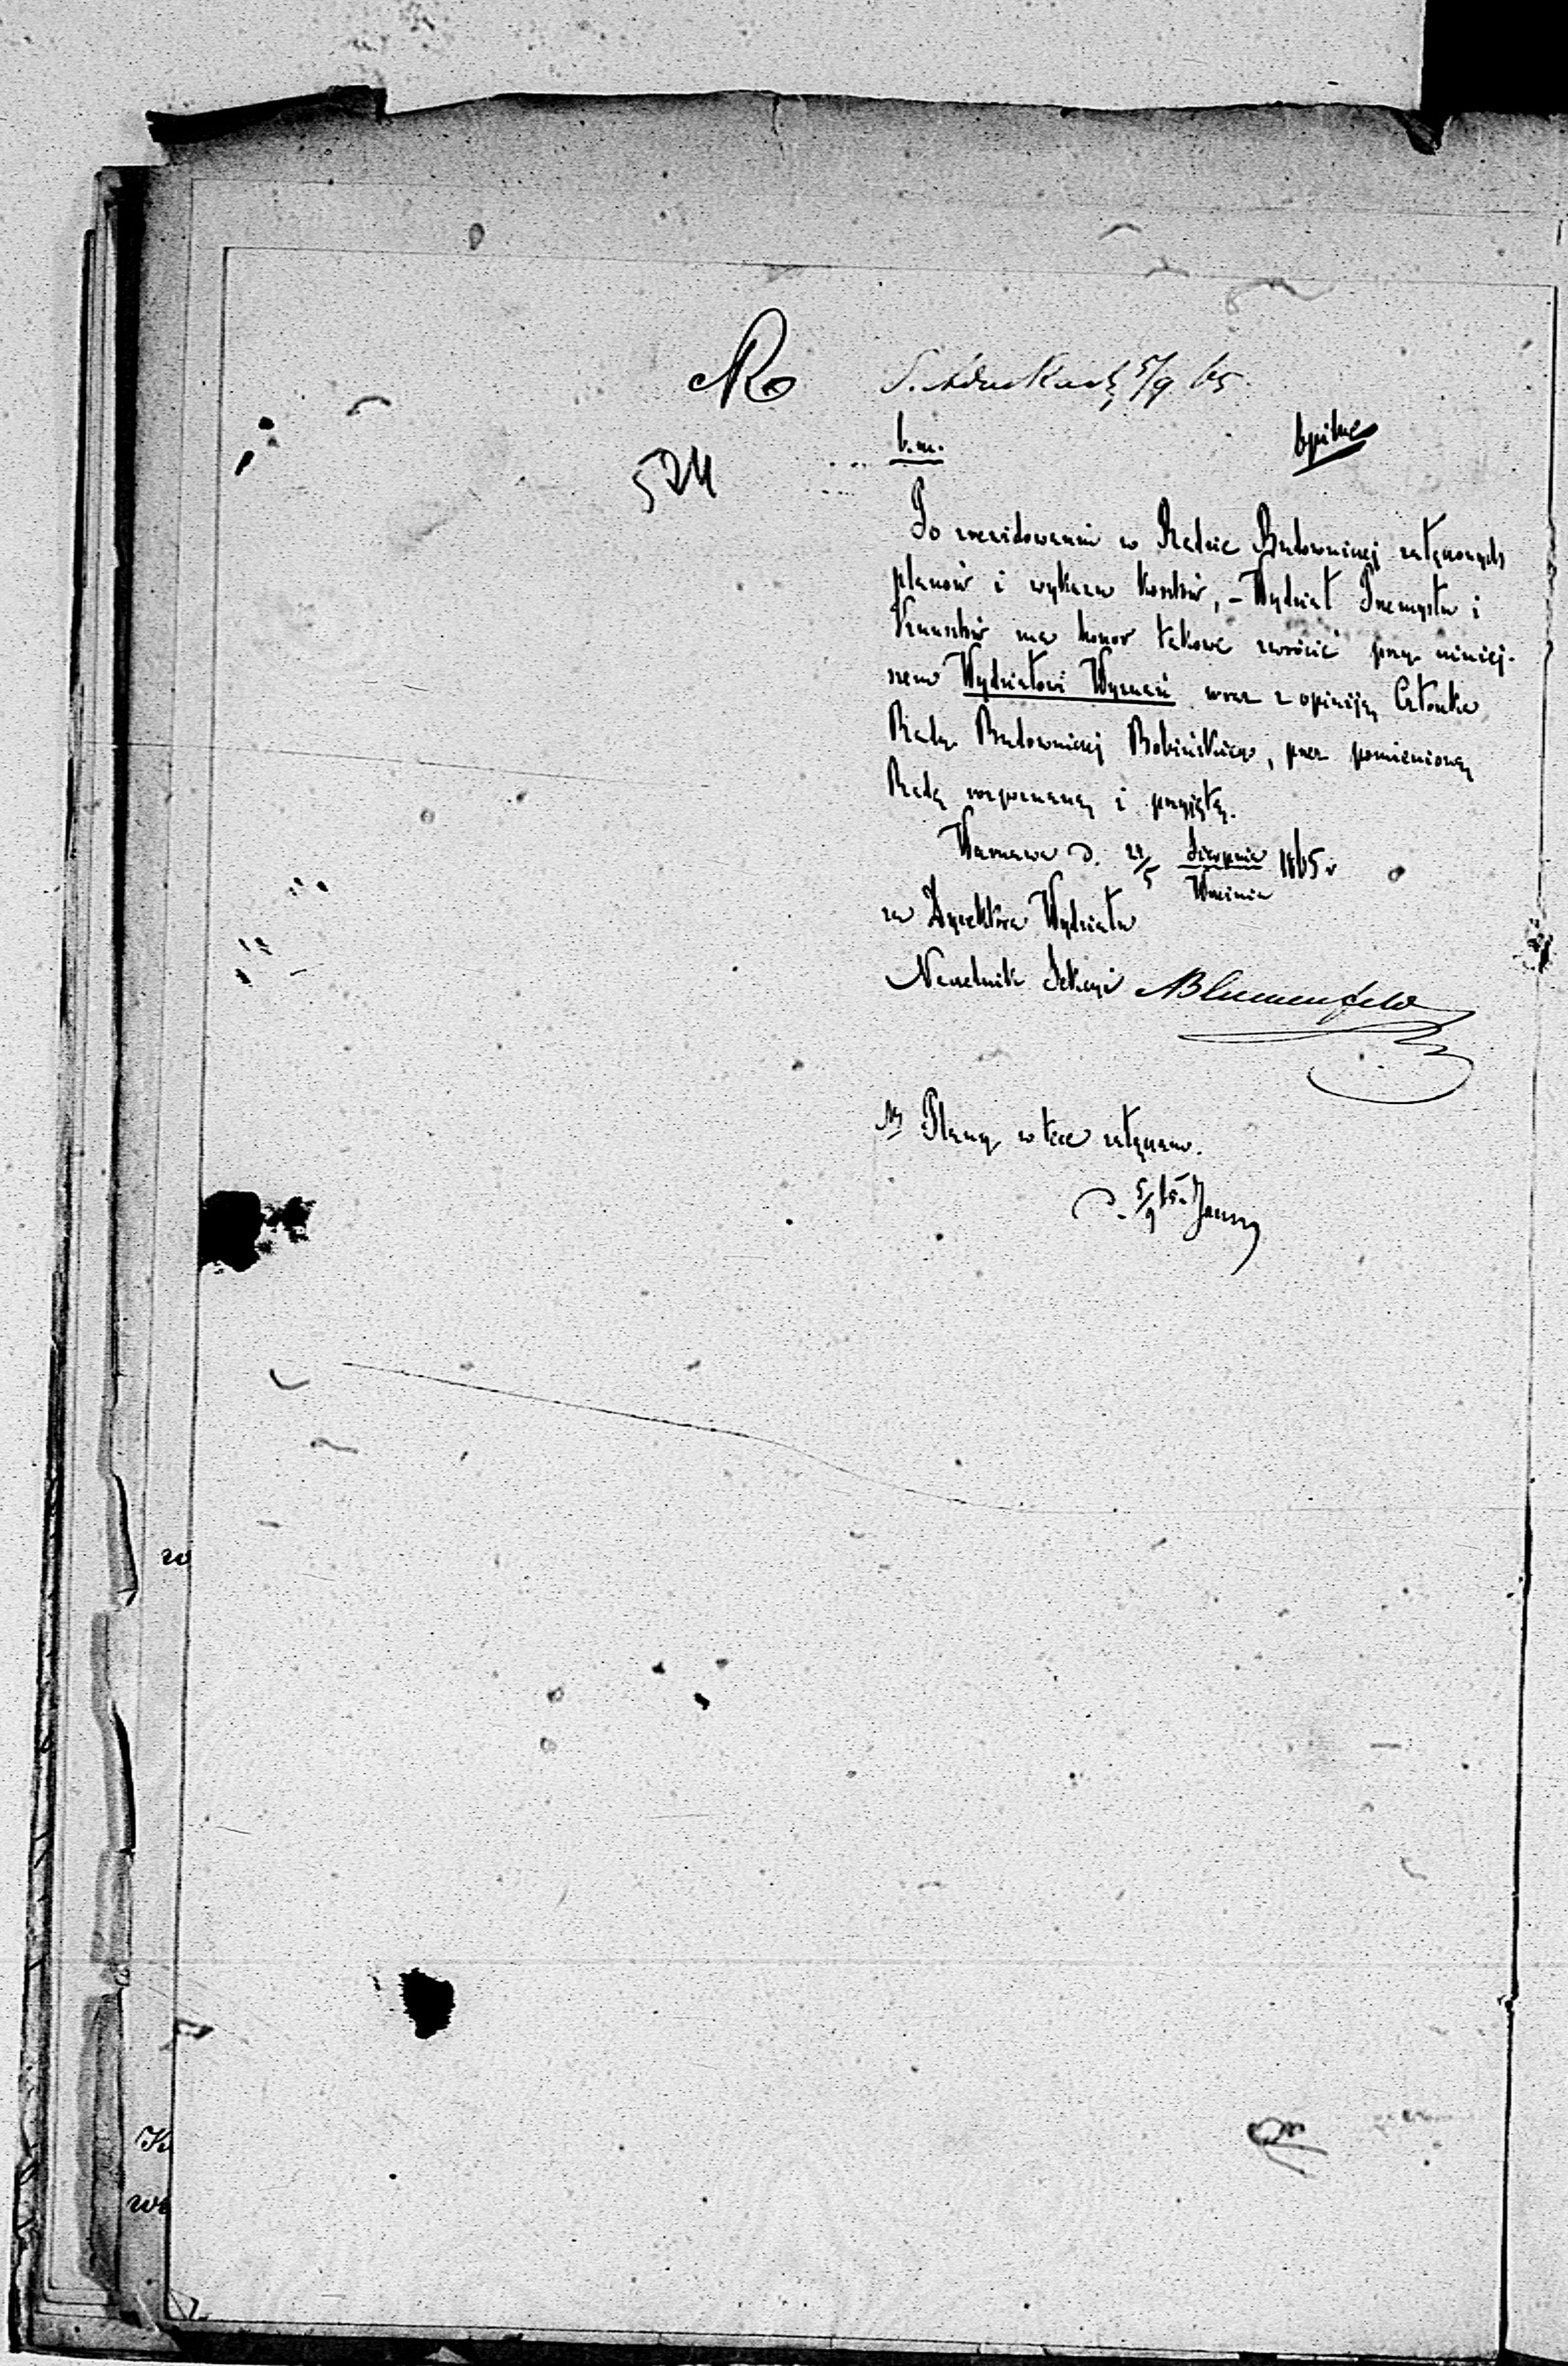 524
b.m.
Spilne
Po zrewidowaniu w Radzie Budowniczej załączonych
planów i wykazu kosztów, – Wydział Przemysłu i
Kunsztów ma honor takowe zwrócić przy niniej-
szem Wydziałowi Wyznań wraz z opiniją Członka
Rady Budowniczej Bobińskiego, przez pomienioną
Radę rozpoznaną i przyjętą.
Warszawa d. 24/5 Sierpnia 1865 r
Września
za Dyrektora Wydziału
Naczelnik Sekcyi ABlumenfeld
Plany w tece załączam.
d. 5/9 65.
w